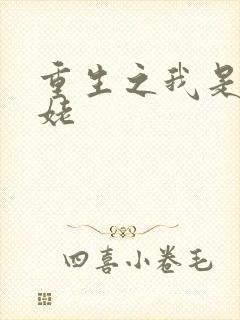 重生之我是
姥
四喜小卷毛